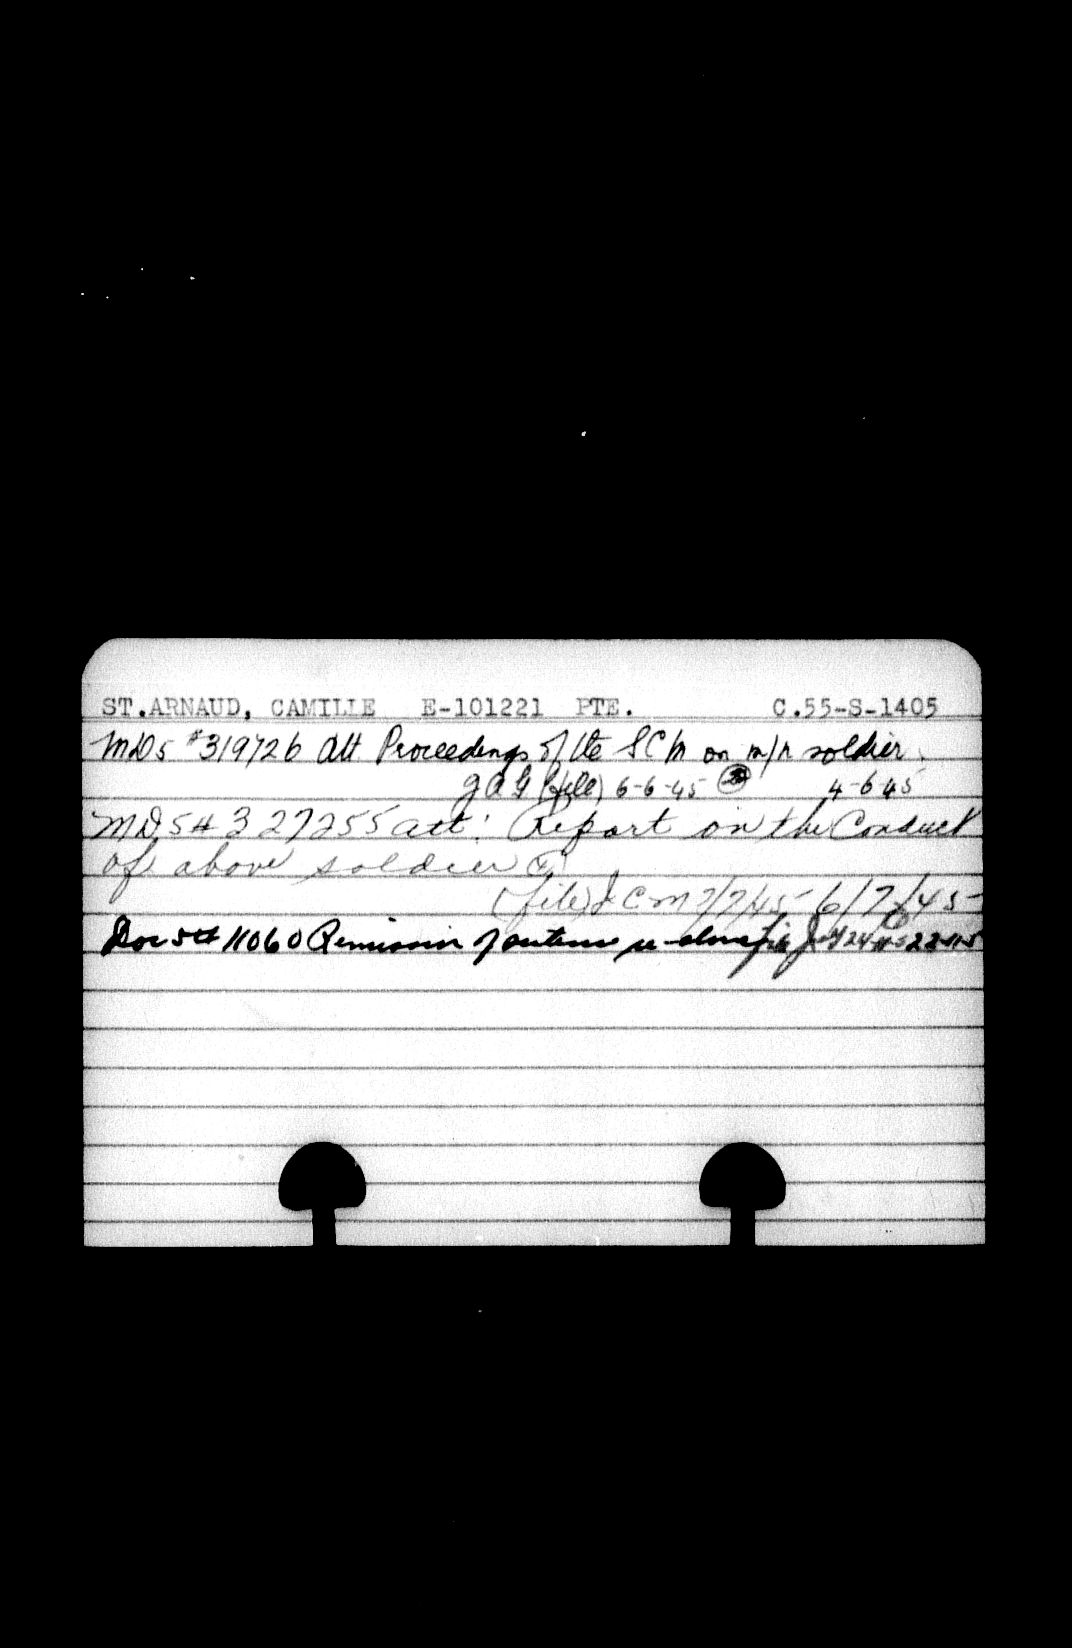 ST.ARNAUD, CAMILLE E-101221 PTE. C.55-S-1405
MD5 #319726 Att Proceedings of the SCM on m/n soldier.
JAG (file) 6-6-45 4-6-45
MD5# 327255 att: Report on the Conduct
of above soldier
(file) JCM 7/7/45 6/7/45
Doc 5# 11060 Remission of sentence